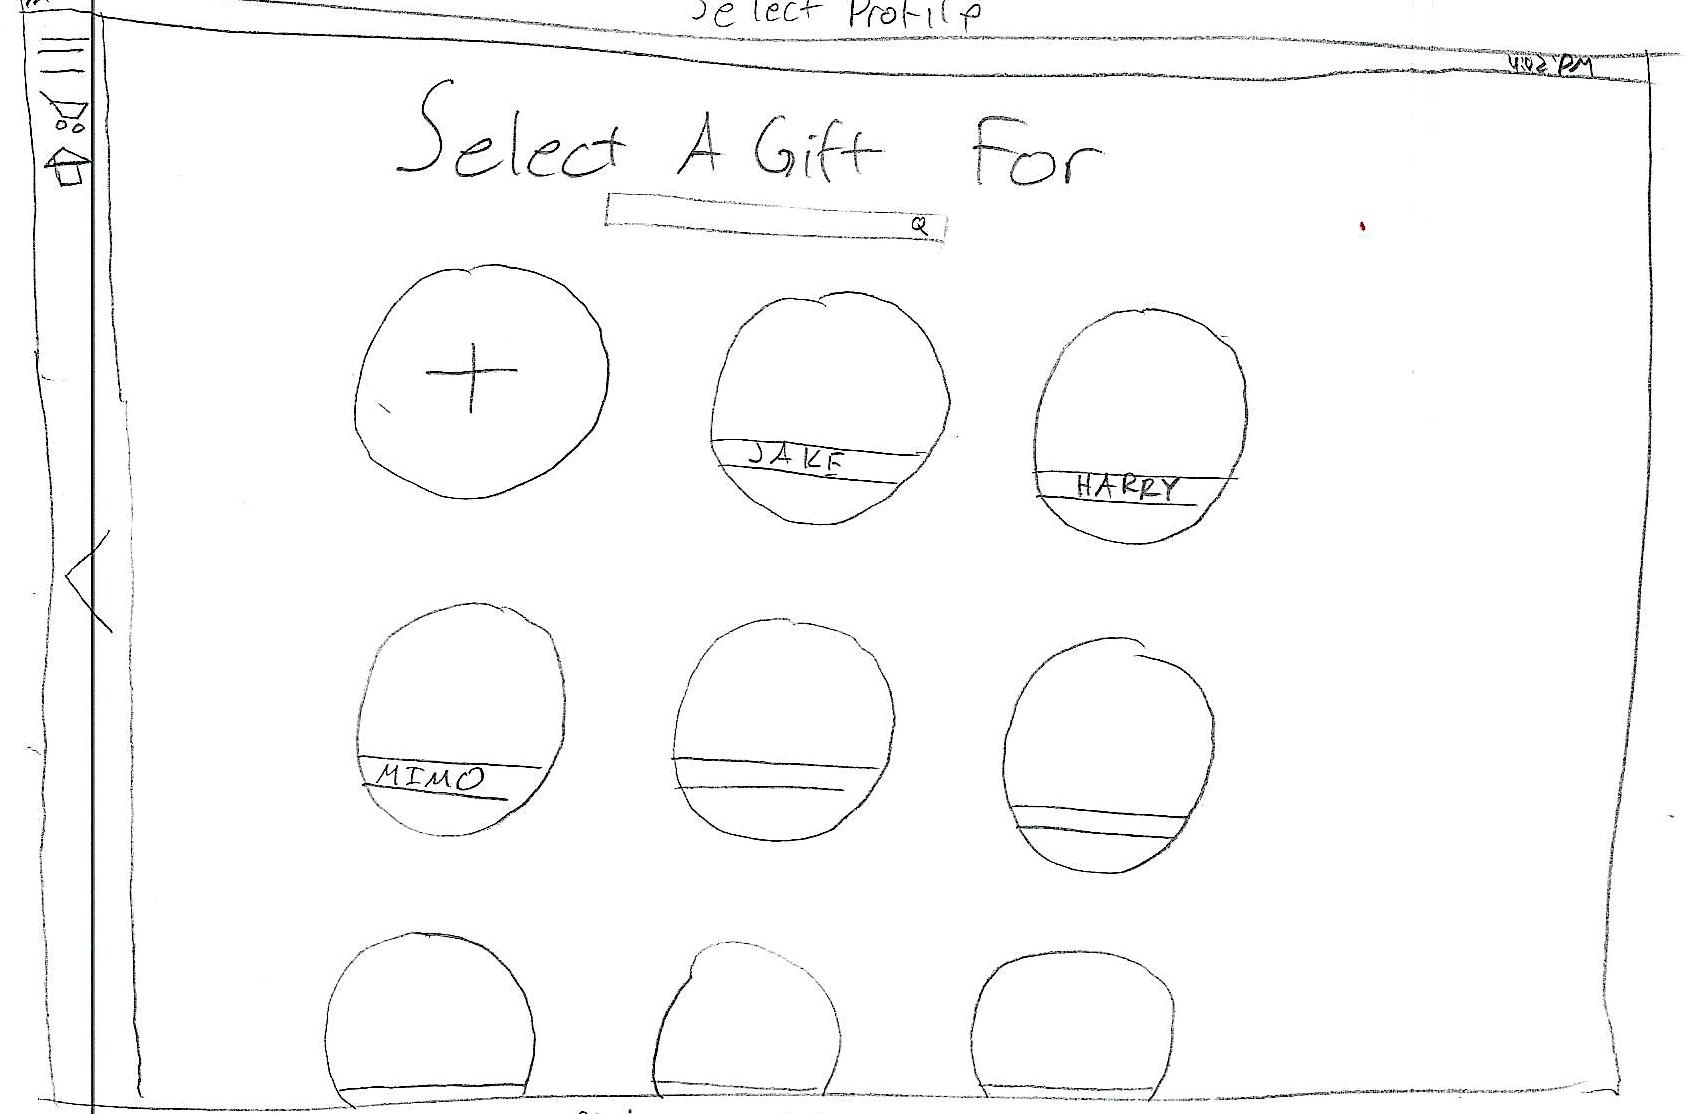 Select Profile
4:02 PM
Select A Gift For
JAKE
HARRY
MIMO